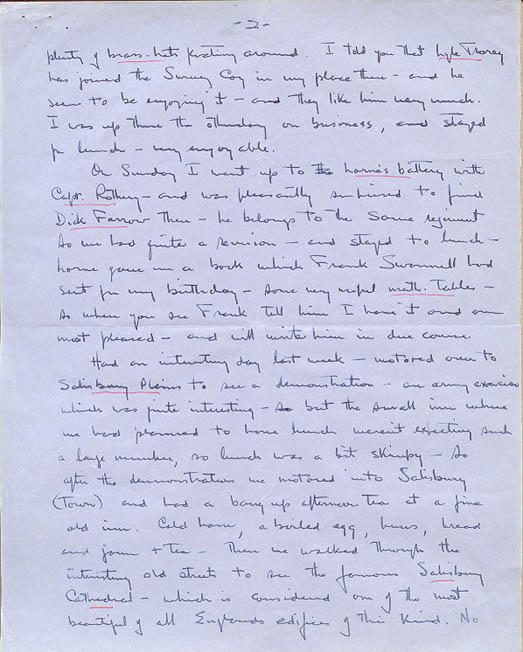 - 2 -
plenty of brass-hats floating around. I told you that Lyle Trorey
has joined the Survey Coy in my place there - and he
seems to be enjoying it - and they like him very much.
I was up there the otherday on business, and stayed
for lunch - very enjoyable.
On Sunday I went up to the Lorne's battery with
Capt. Rothery - and was pleasantly surprised to find
Dick Farrow there - he belongs to the same regiment
so we had quite a reunion - and stayed to lunch -
Lorne gave me a book which Frank Swannell had
sent for my birthday - some very useful math. tables -
so when you see Frank tell him I have it and am
most pleased - and will write him in due course.
Had an interesting day last week - motored over to
Salisbury Plains to see a demonstration - an army exercise
which was quite interesting - so but the small inn where
we had planned to have lunch weren't expecting such
a large number, so lunch was a bit skimpy - So
after the demonstration we motored into Salisbury
(Town) and had a bang up afternoon tea at a fine
old inn. Cold ham, a boiled egg, buns, bread
and jam + tea - Then we walked through the
interesting old streets to see the famous Salisbury
Cathedral - which is considered one of the most
beautiful of all Englands edifices of this kind. No